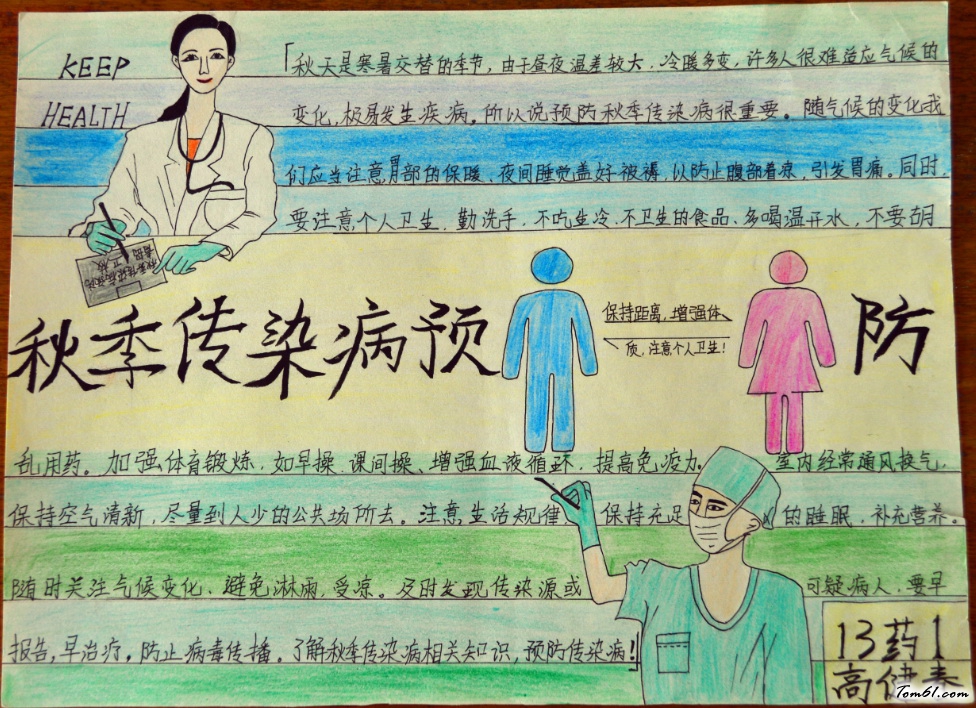 KEEP
HEALTH
「秋天是寒暑交替的季节,由于昼夜温差较大、冷暖多变,许多人很难适应气候的
变化,极易发生疾病。所以说预防秋季传染病很重要。随气候的变化我
们应当注意胃部的保暖、夜间睡觉盖好被褥,以防止腹部着凉,引发胃痛。同时,
要注意个人卫生、勤洗手、不吃生冷、不卫生的食品、多喝温开水,不要胡
秋季传染病预防
保持距离,增强体
质,注意个人卫生!
乱用药。加强体育锻炼、如早操、课间操、增强血液循环、提高免疫力。室内经常通风换气,
保持空气清新,尽量到人少的公共场所去。注意生活规律、保持充足的睡眠、补充营养。
随时关注气候变化、避免淋雨,受凉。及时发现传染源或可疑病人、要早
报告,早治疗。防止病毒传播。了解秋季传染病相关知识,预防传染病!
13药1
高健春
Tom61.com